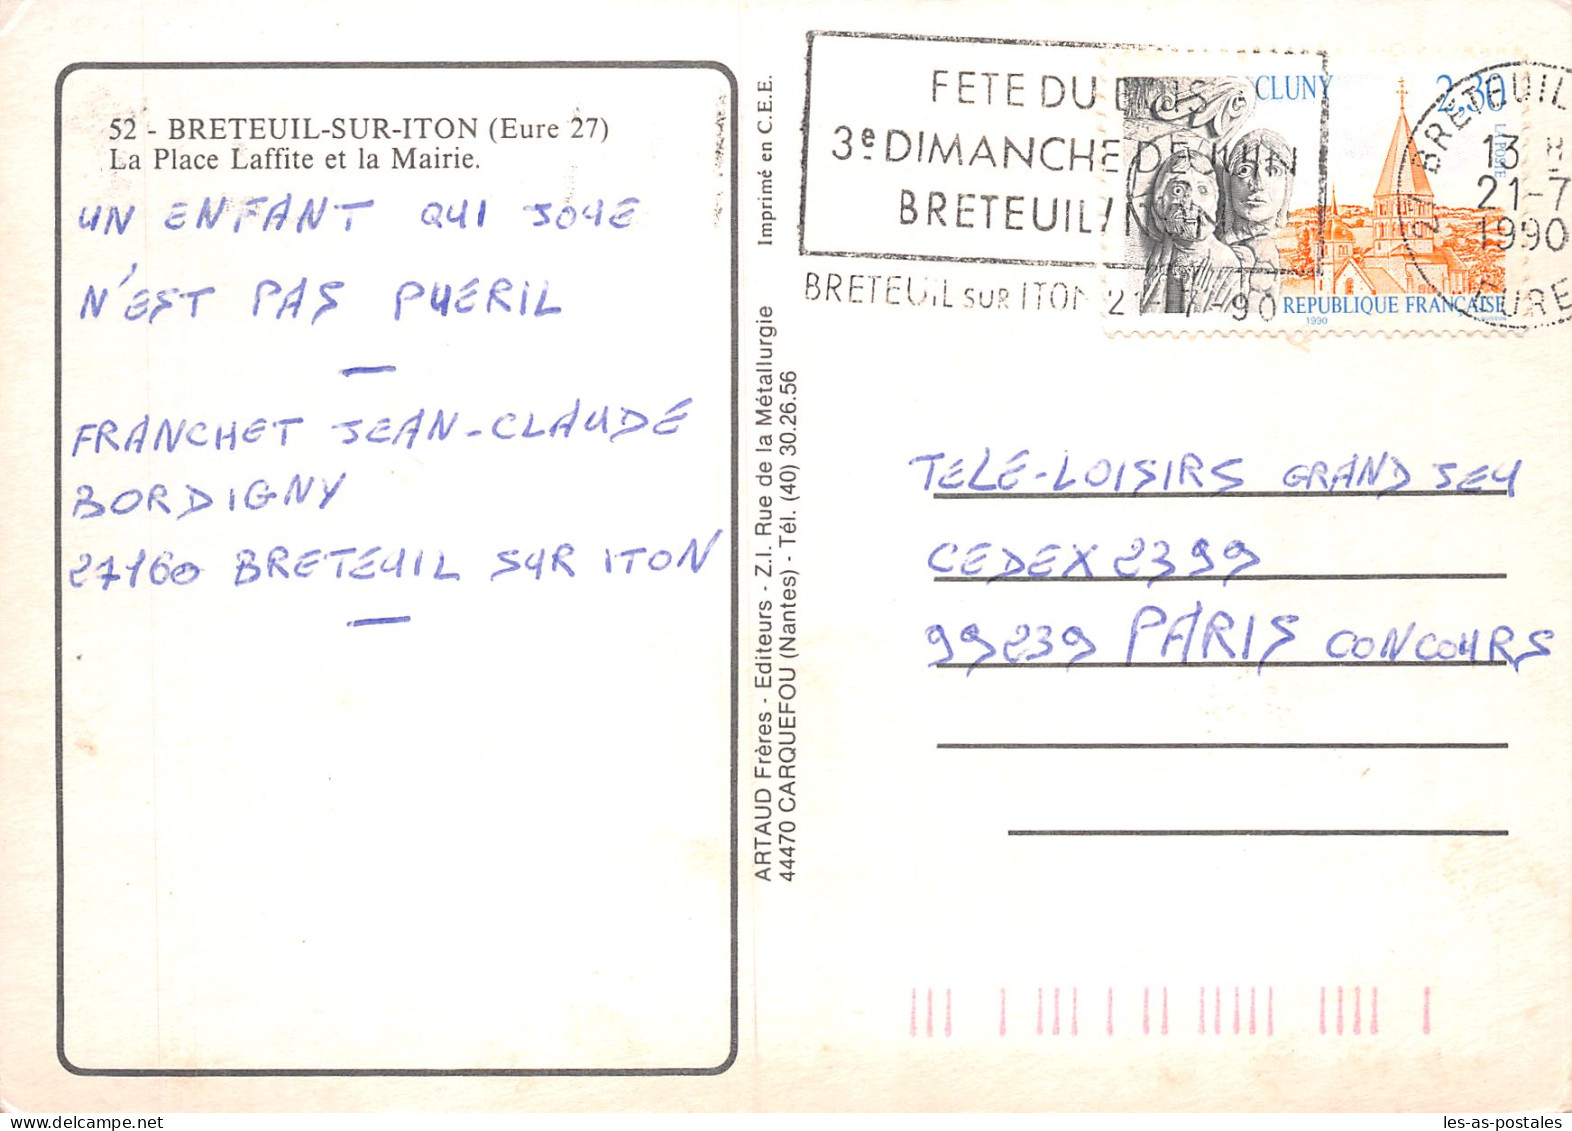 52 - BRETEUIL-SUR-ITON (Eure 27)
La Place Laffite et la Mairie.
UN ENFANT QUI JOUE
N'EST PAS PUERIL
FRANCHET JEAN-CLAUDE
BORDIGNY
27160 BRETEUIL SUR ITON
ARTAUD Frères - Editeurs - Z.I. Rue de la Métallurgie
44470 CARQUEFOU (Nantes) - Tél. (40) 30.26.56
Imprimé en C.E.E.
FETE DU BOIS
3e DIMANCHE DE JUIN
BRETEUIL/ITON
BRETEUIL SUR ITON 21-7-90
CLUNY
2,30
LA POSTE
REPUBLIQUE FRANÇAISE
1990
27 BRETEUIL
13 H
21-7
1990
EURE
TELE-LOISIRS GRAND JEU
CEDEX 2399
99239 PARIS CONCOURS
les-as-postales